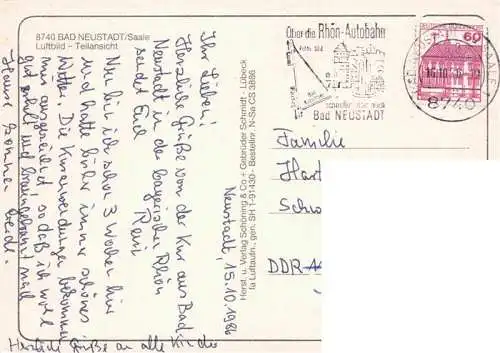 8740 BAD NEUSTADT/Saale
Luftbild - Teilansicht
Neustadt, 15.10.1986
Ihr Lieben!
Herzliche Grüße von der Kur aus Bad
Neustadt in der bayerischen Rhön
sendet Euch
Resi
Nun bin ich schon 3 Wochen hier
und hatte bisher immer schönes
Wetter. Die Kuranwendungen bekommen
mir ausgezeichnet so daß ich wohl
gut erholt und braungebrannt nach
Hause kommen werde.
Herzliche Grüße an alle Kinder
Herst. u. Verlag Schöning & Co + Gebrüder Schmidt - Lübeck
Luftaufn., gen. SH 1-91430 - Bestellnr. N-Sa CS 3886
Über die Rhön-Autobahn
schneller nach
Bad NEUSTADT
60
8740
Familie
Hart
Schw
DDR